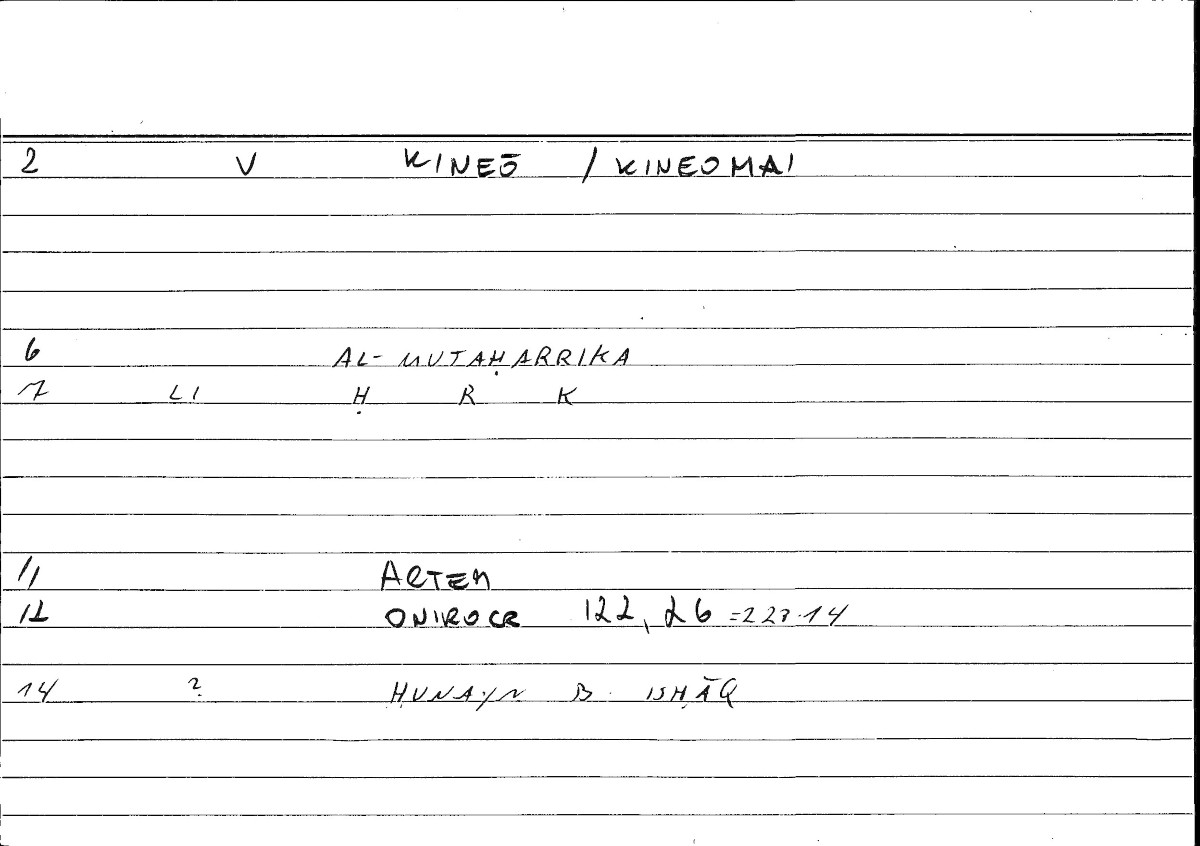 2 V KINEŌ / KINEOMAI
6 AL-MUTAḤARRIKA
7 LI Ḥ R K
11 ARTEM
12 ONIROCR 122, 26 =223.14
14 ? ḤUNAYN B. ISḤĀQ